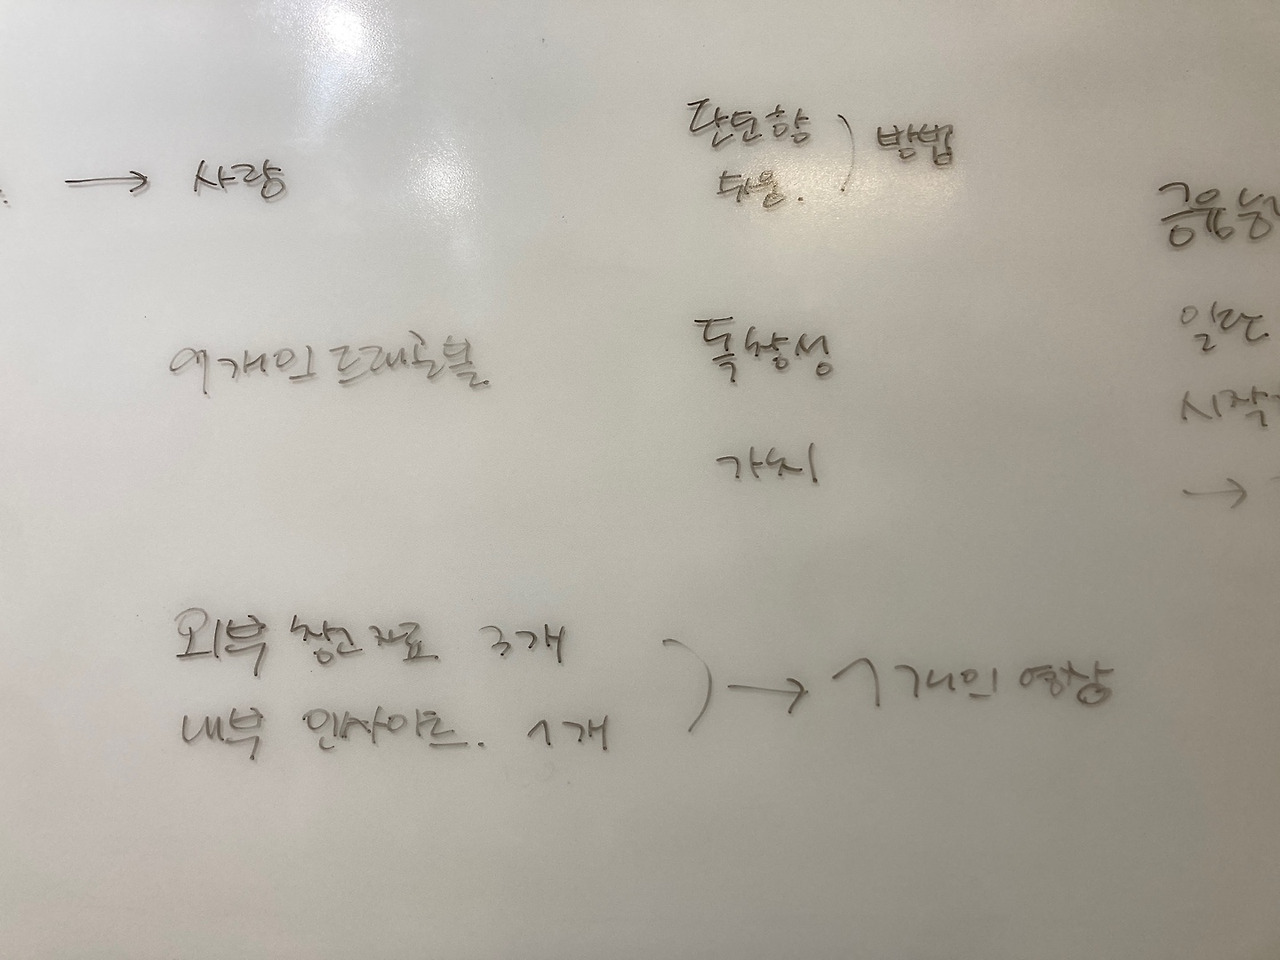 → 사랑
단순함 ) 방법
쉬움.
금융
일단
시작
→
독창성
가치
여개의 드래곤볼
외부 참고 자료 3개
내부 인사이트. 1개
) → 1개의 영상